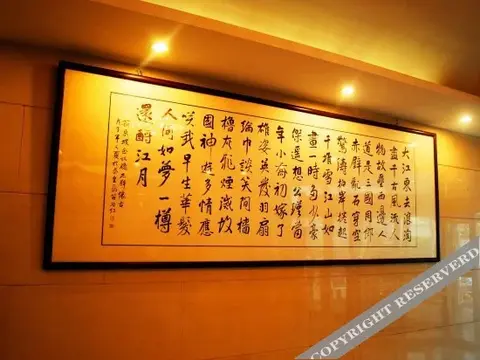 大江東去浪淘
盡千古風流人
物故壘西邊人
道是三國周郎
赤壁亂石穿空
驚濤拍岸捲起
千堆雪江山如
畫一時多少豪
傑遙想公瑾當
年小喬初嫁了
雄姿英發羽扇
綸巾談笑間檣
櫓灰飛煙滅故
國神遊多情應
笑我早生華髮
人間如夢一樽
還酹江月
COPYRIGHT RESERVED